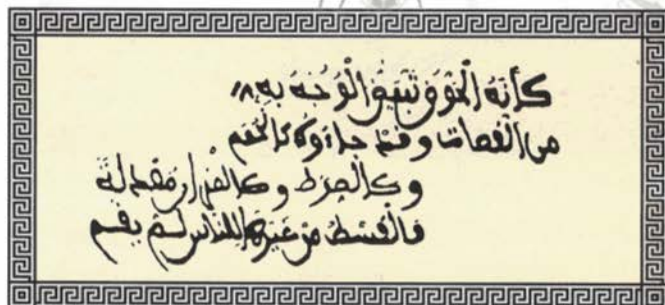 كأنها الحوض تبيض الوجوه به
من العصات وقد جاءوه كالحمم
وكالصراط وكالميزان معدلة
فالقسط من غيرها في الناس لم يقم